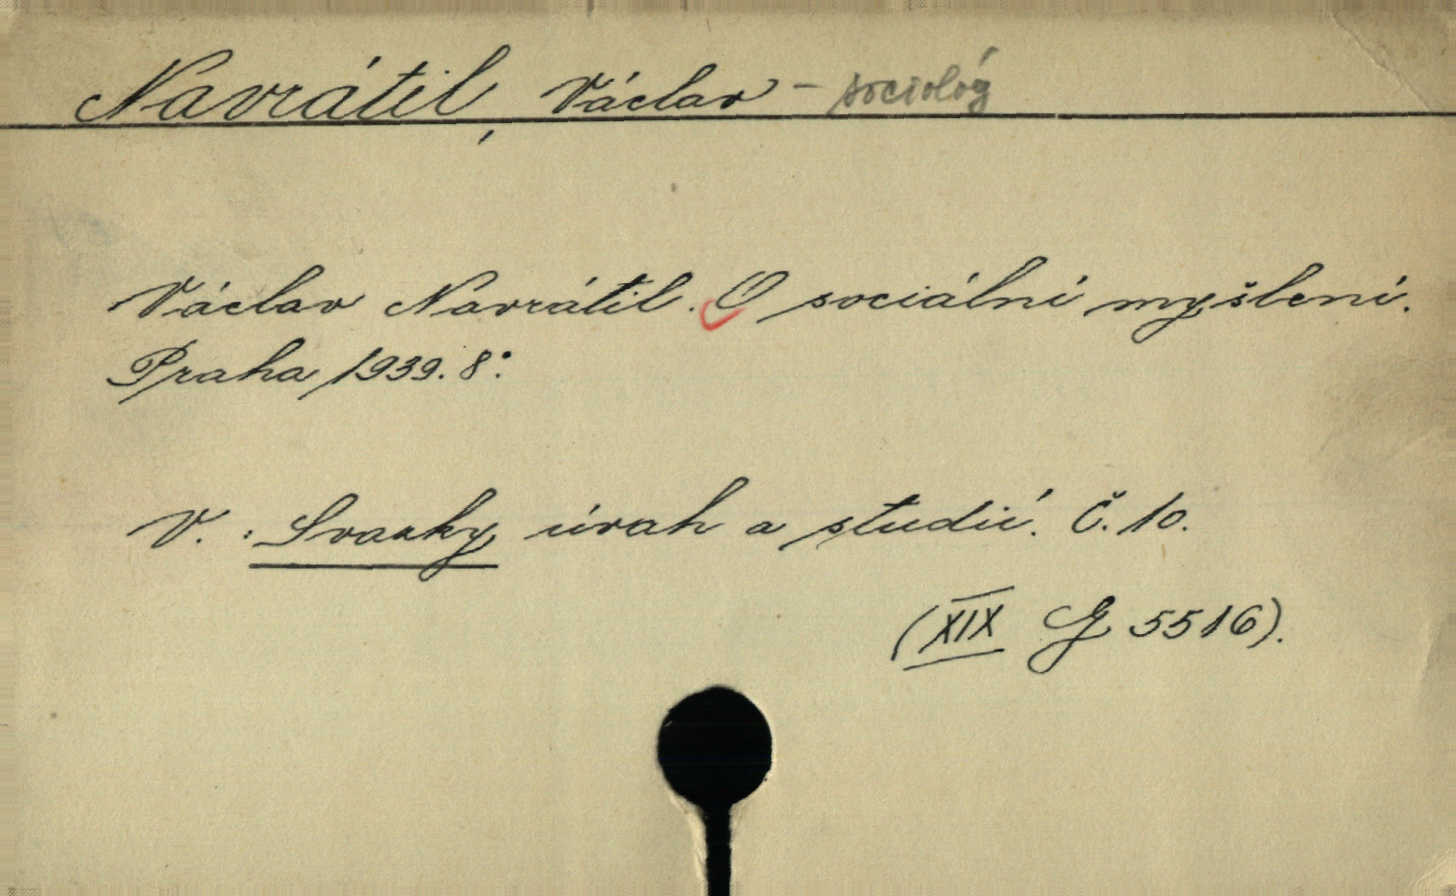 Navrátil, Václav – sociológ
Václav Navrátil. O sociální myšlení.
Praha 1939. 8°.
V.: Svazky úvah a studií. Č. 10.
(XIX G 5516).